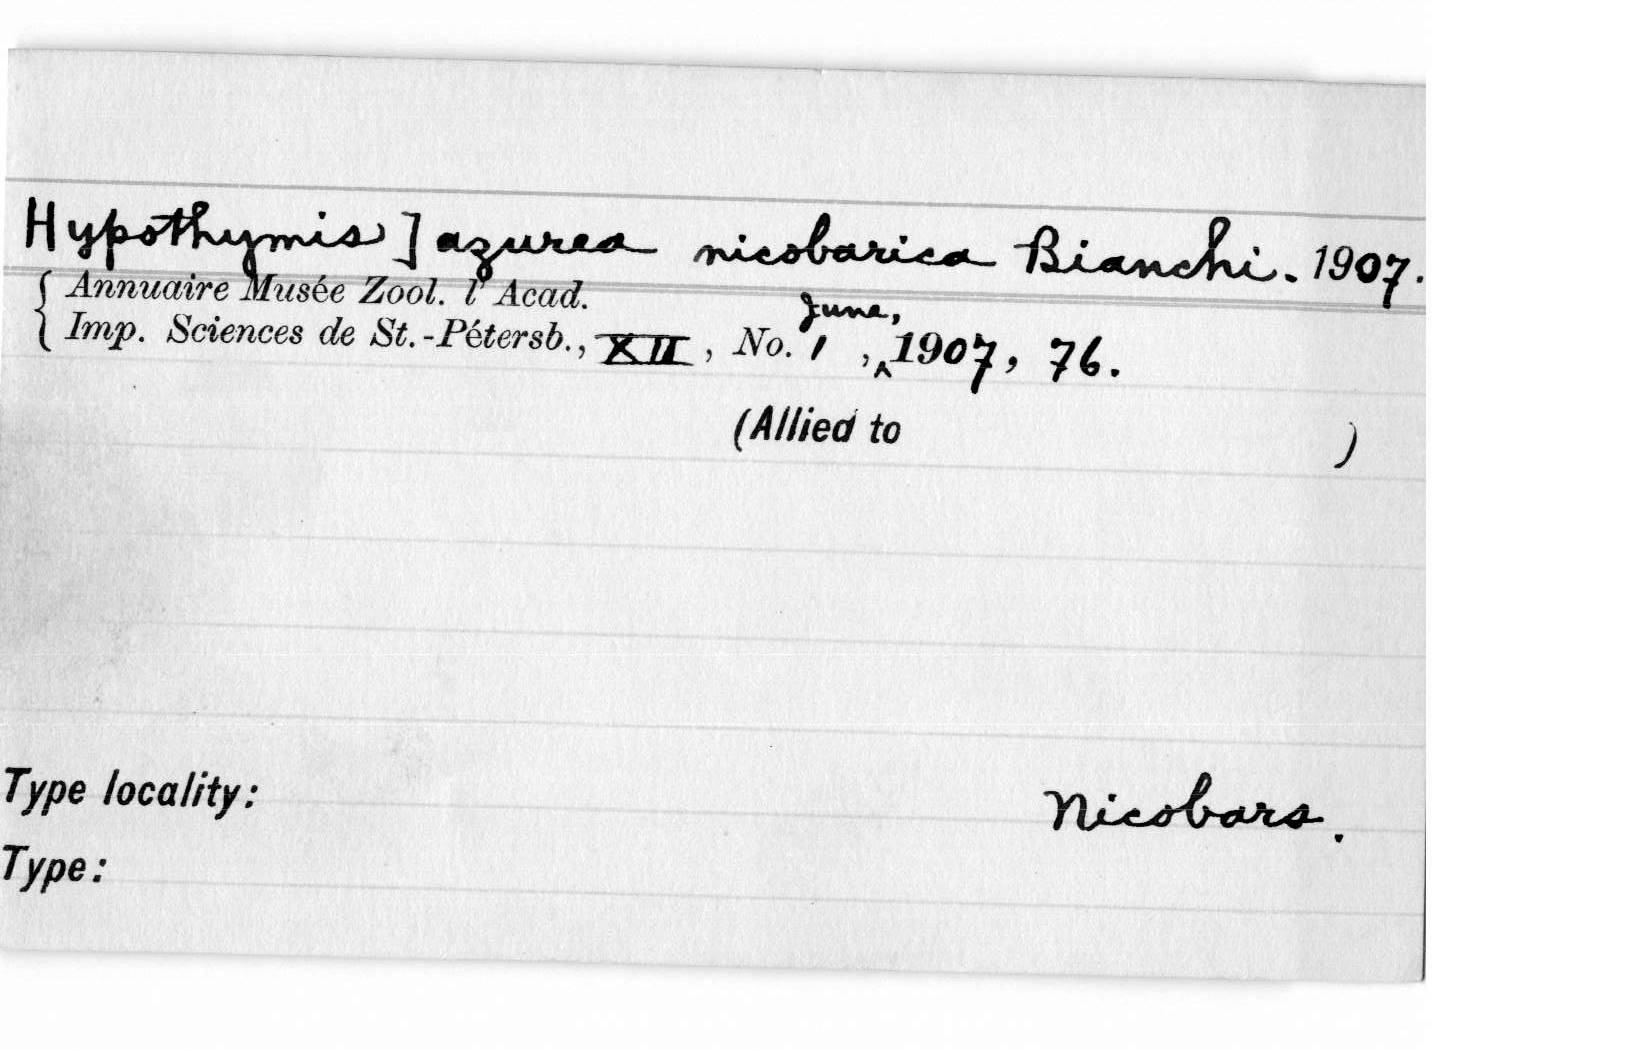 Hypothymis] azurea nicobarica Bianchi. 1907.
{ Annuaire Musée Zool. l'Acad.
June,
Imp. Sciences de St.-Pétersb., XII, No. 1 ,^1907, 76.
(Allied to )
Type locality: Nicobars.
Type: